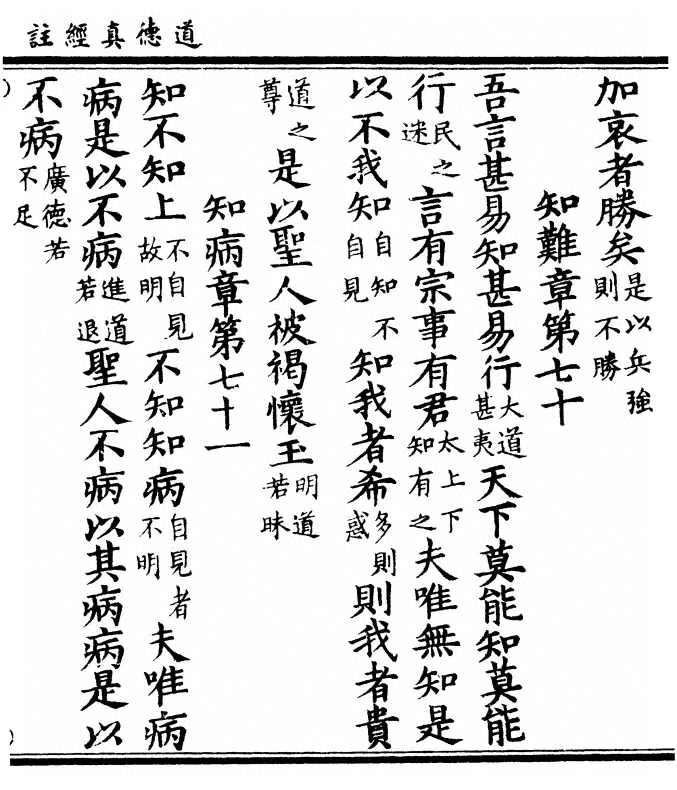 道德真經註
加哀者勝矣是以兵強則不勝
知難章第七十
吾言甚易知甚易行大道甚夷天下莫能知莫能
行民之迷言有宗事有君太上下知有之夫唯無知是
以不我知自知不自見知我者希多則惑則我者貴
道之尊是以聖人被褐懷玉明道若昧
知病章第七十一
知不知上不自見故明不知知病自見者不明夫唯病
病是以不病進道若退聖人不病以其病病是以
不病廣德若不足